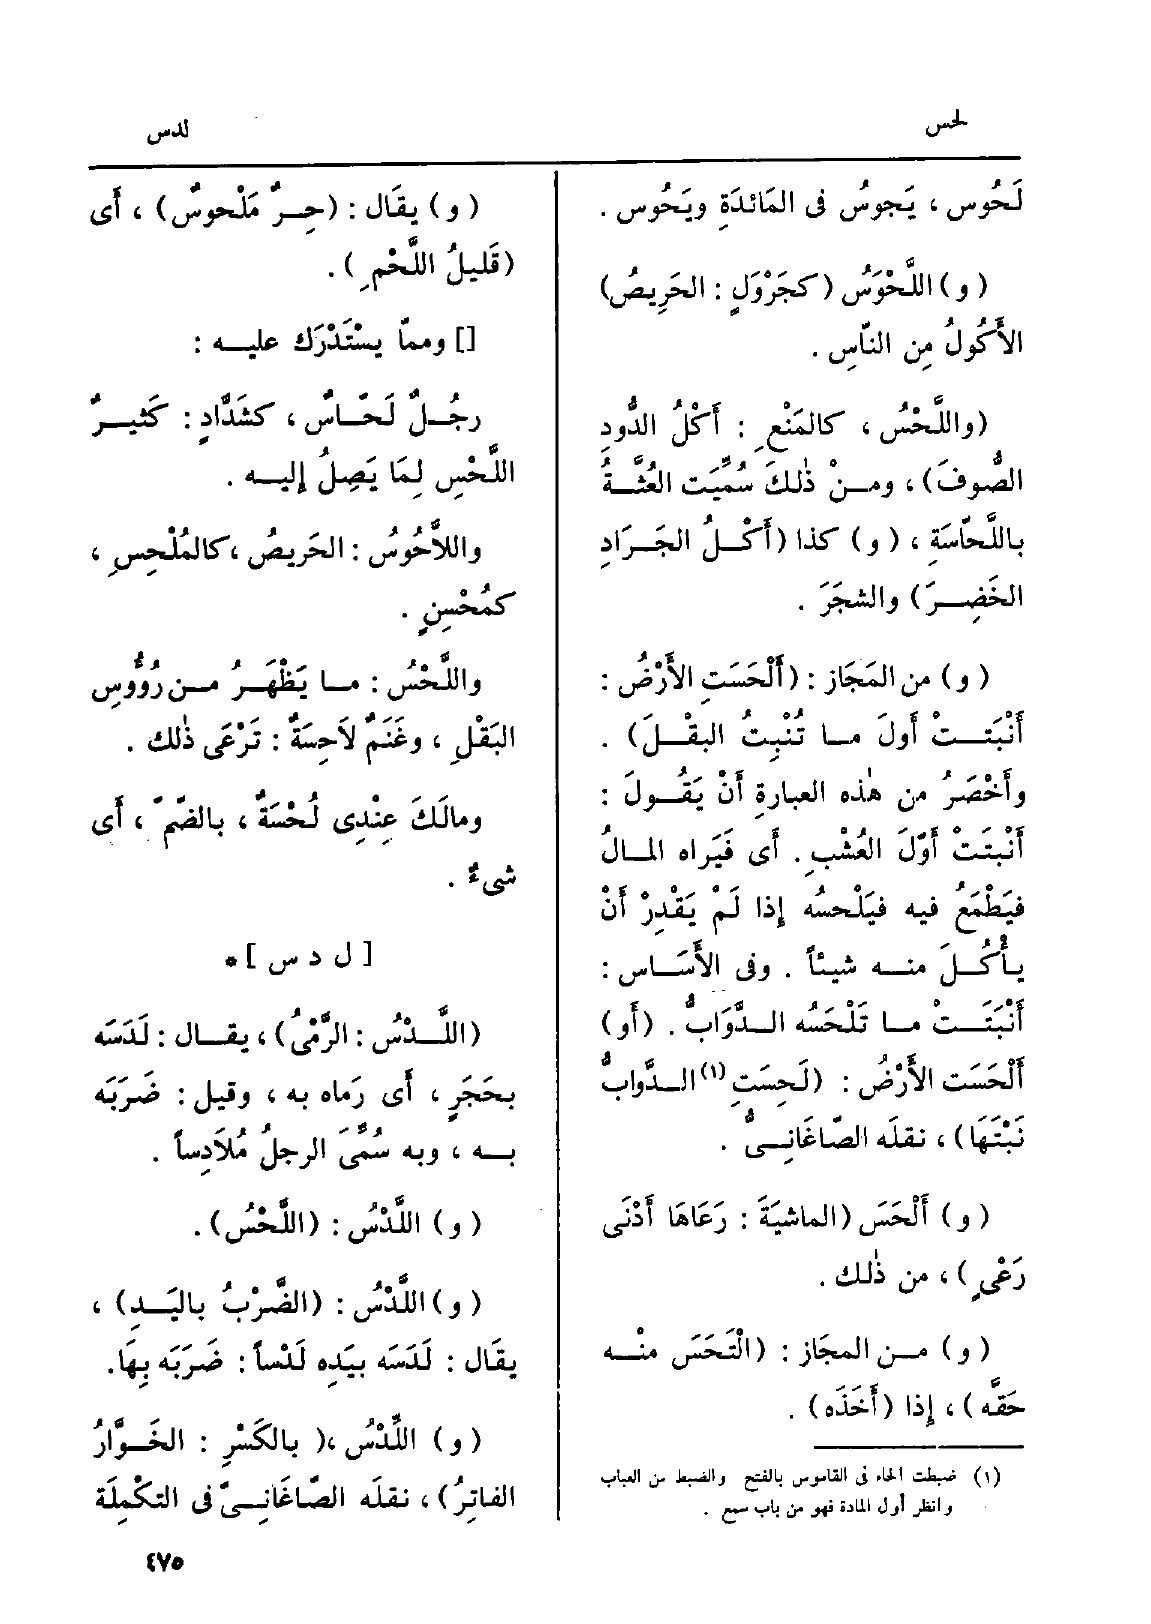 لحس
لدس
لَحُوس ، يَجوسُ فى المَائدَةِ ويَحُوس .
( و ) اللَّحْوَسُ (كجَرْوَلٍ : الحَرِيصُ)
الأَكُولُ مِن النَّاسِ .
(واللَّحْسُ ، كالمَنْعِ : أَكْلُ الدُّودِ
الصُّوفَ) ، ومـنْ ذٰلكَ سُمِّيَت العُثَّـةُ
بِاللَّحَّاسَةِ ، ( و ) كذا (أَكْـلُ الجَـرَادِ
الخَضِـرَ) والشجَرَ .
( و ) من المَجَاز : (أَلْحَسَتِ الأَرْضُ :
أَنْبَتَـتْ أَولَ مـا تُنْبِتُ البقْـلَ) .
وأَخْصَرُ من هٰذه العبارةِ أَنْ يَقُـولَ :
أَنْبتَتْ أَوّلَ العُشْبِ . أَى فَيَراه المـالُ
فيَطْمَعُ فيه فيَلْحسُه إِذا لَمْ يَقْدِرْ أَنْ
يـأْكُـلَ منـه شيئاً . وفى الأَسَـاس :
أَنْبَتَـتْ مـا تَلْحَسُه الـدَّوَابُّ . (أَو)
أَلْحَسَت الأَرْضُ : (لَحِسَتِ (١) الـدَّوابُّ
نَبْتَهَا) ، نقلَه الصّاغَانِـىُّ .
( و ) أَلْحَسَ (الماشيَةَ : رَعَاهَا أَدْنَى
رَعْىٍ ) ، من ذٰلك .
( و ) مـن المجَاز : (الْتَحَسَ منْـه
حَقَّه ) ، إِذا (أَخَذَه) .
(١) ضبطت الحاء فى القاموس بالفتح والضبط من العباب
وانظر أول المادة فهو من باب سمع .
( و ) يقَال : (حِـرٌ مَلْحوسٌ) ، أَى
(قَليلُ اللَّحْمِ ) .
[] وممّا يسْتَدْرَك عليـه :
رجُـلٌ لَحّـاسٌ ، كشَدَّادٍ : كَثيـرُ
اللَّحْسِ لِمَا يَصِلُ إِليـه .
واللاَّحُوسُ : الحَريصُ ، كالمُلْحِسِ ،
كمُحْسِنٍ .
واللَّحْسُ : مـا يَظْهَـرُ مـن رُؤُوسِ
البَقْلِ ، وغَنَمٌ لاَحِسَةٌ : تَرْعَى ذٰلك .
ومالَكَ عِنْدِى لُحْسَةٌ ، بالضّمّ ، أَى
شىءٌ .
[ ل د س ] *
(اللَّـدْسُ : الرَّمْىُ) ، يقـال : لَدَسَه
بحَجَرٍ ، أَى رَماه به ، وقيل : ضَرَبَه
بـه ، وبه سُمِّىَ الرجلُ مُلاَدِساً .
( و ) اللَّدْسُ : (اللَّحْسُ) .
( و ) اللَّدْسُ : (الضَّرْبُ باليَـدِ) ،
يقَال : لَدَسَه بيَدِه لَدْساً : ضَرَبَه بِهَا.
( و ) اللِّدْسُ ،( بالكَسْرِ : الخَـوَّارُ
الفاتِرُ) ، نقلَه الصّاغَانِـىّ فى التكْمِلَة
٤٧٥